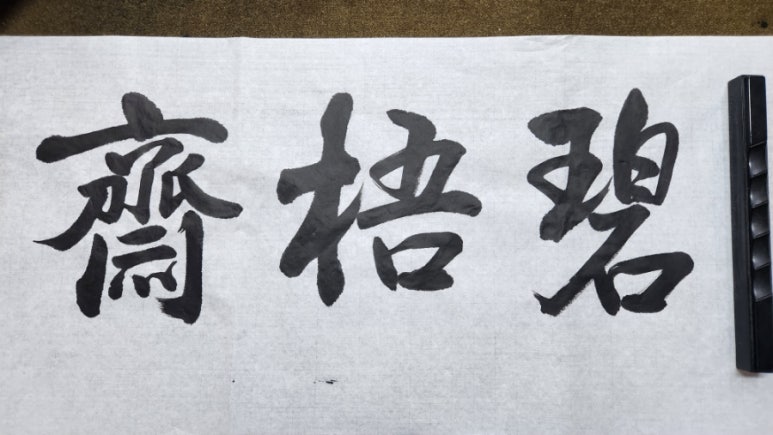 碧梧齋